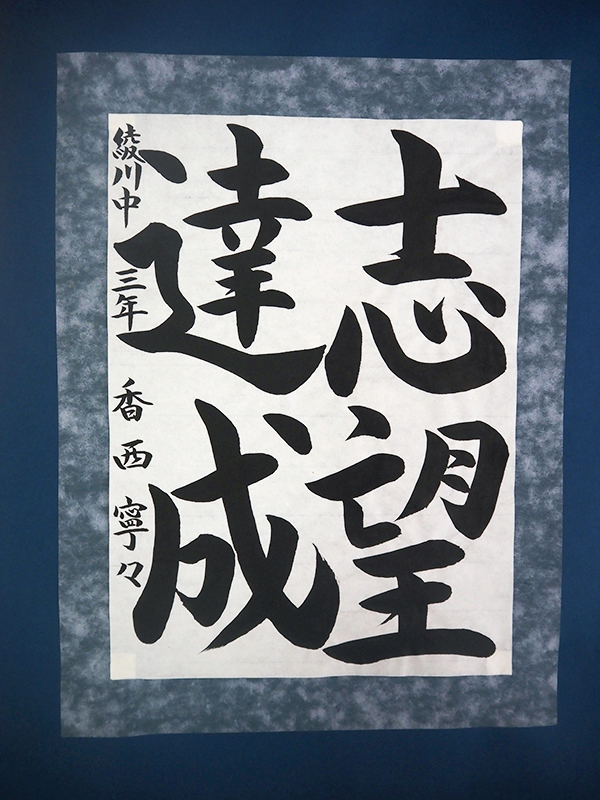 志望
達成
綾川中 三年 香西 寧々